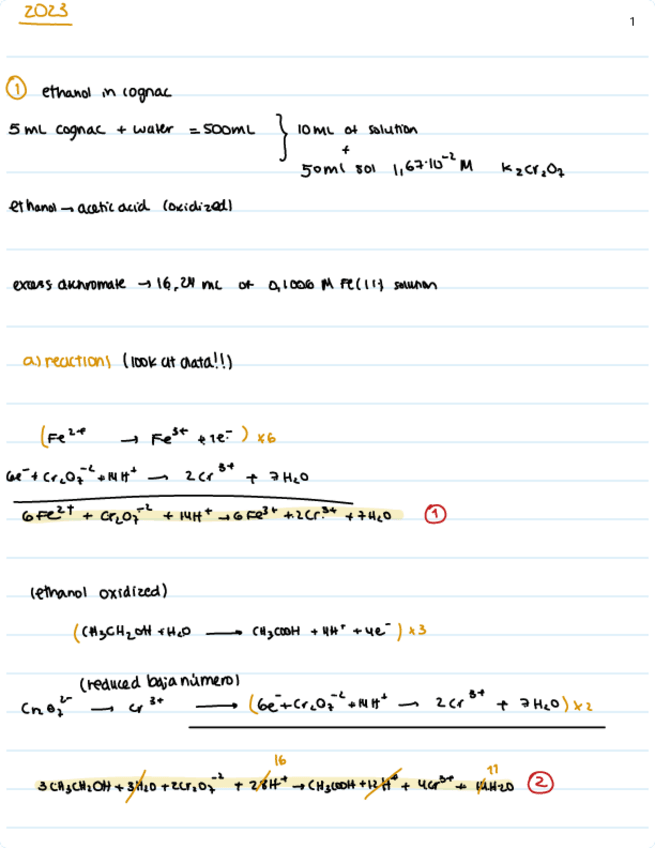 2023
1
① ethanol in cognac
5 mL cognac + water = 500mL } 10 mL of solution
+
50ml sol 1,67·10⁻² M K₂Cr₂O₇
ethanol → acetic acid (oxidized)
excess dichromate → 16,24 mL of 0,1006 M Fe(II) solution
a) reactions (look at data!!)
(Fe²⁺ → Fe³⁺ + 1e⁻) x6
6e⁻ + Cr₂O₇⁻² + 14H⁺ → 2Cr³⁺ + 7H₂O
6Fe²⁺ + Cr₂O₇⁻² + 14H⁺ → 6Fe³⁺ + 2Cr³⁺ + 7H₂O ①
(ethanol oxidized)
(CH₃CH₂OH + H₂O → CH₃COOH + 4H⁺ + 4e⁻) x3
(reduced baja número)
Cr₂O₇²⁻ → Cr³⁺ → (6e⁻ + Cr₂O₇⁻² + 14H⁺ → 2Cr³⁺ + 7H₂O) x2
16 11
3CH₃CH₂OH + 3H₂O + 2Cr₂O₇⁻² + 28H⁺ → CH₃COOH + 12H⁺ + 4Cr³⁺ + 14H₂O ②